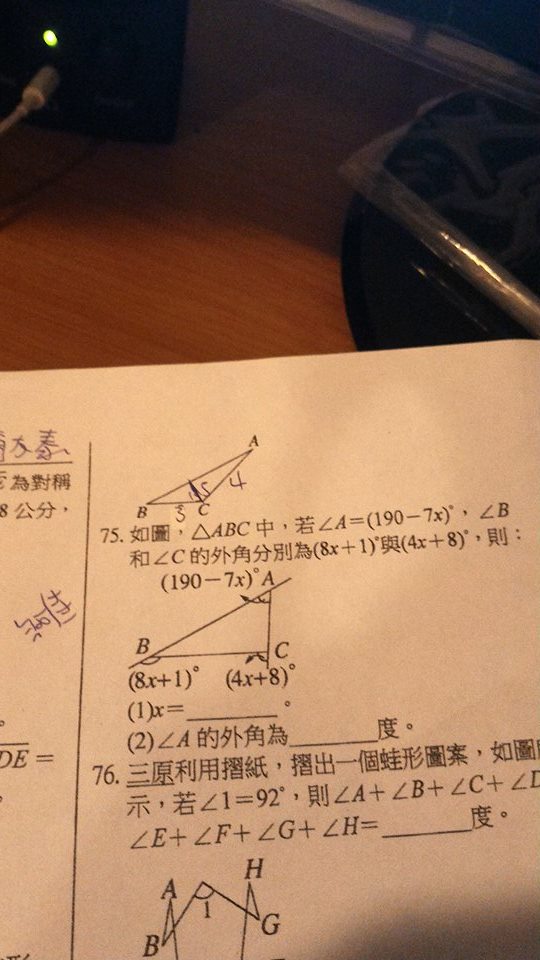 為對稱
8公分，
DE=
A
B
C
3
4
75. 如圖，△ABC中，若∠A=(190-7x)°，∠B
和∠C的外角分別為(8x+1)°與(4x+8)°，則：
(190-7x)°A
B
C
(8x+1)° (4x+8)°
(1)x=________。
(2)∠A的外角為________度。
76. 三原利用摺紙，摺出一個蛙形圖案，如圖
示，若∠1=92°，則∠A+∠B+∠C+∠D
∠E+∠F+∠G+∠H=________度。
H
A
1
G
B